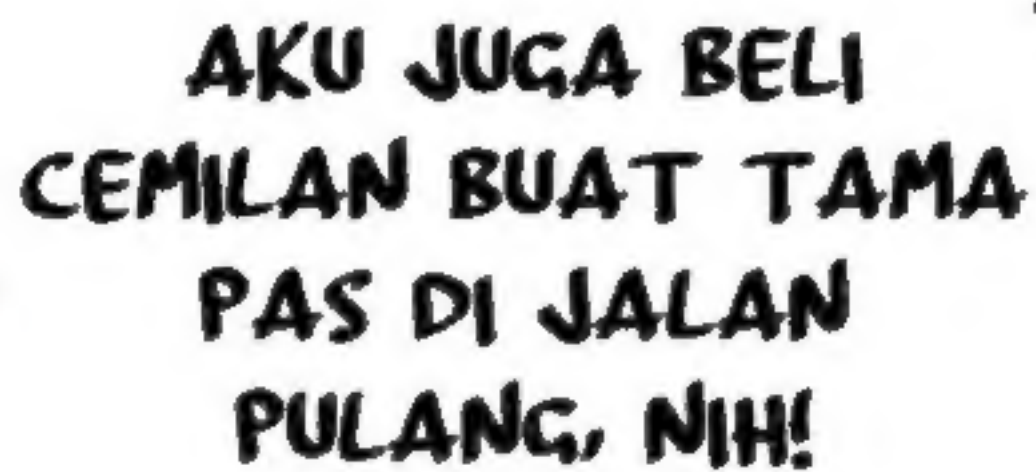 AKU JUGA BELI
CEMILAN BUAT TAMA
PAS DI JALAN
PULANG, NIH!